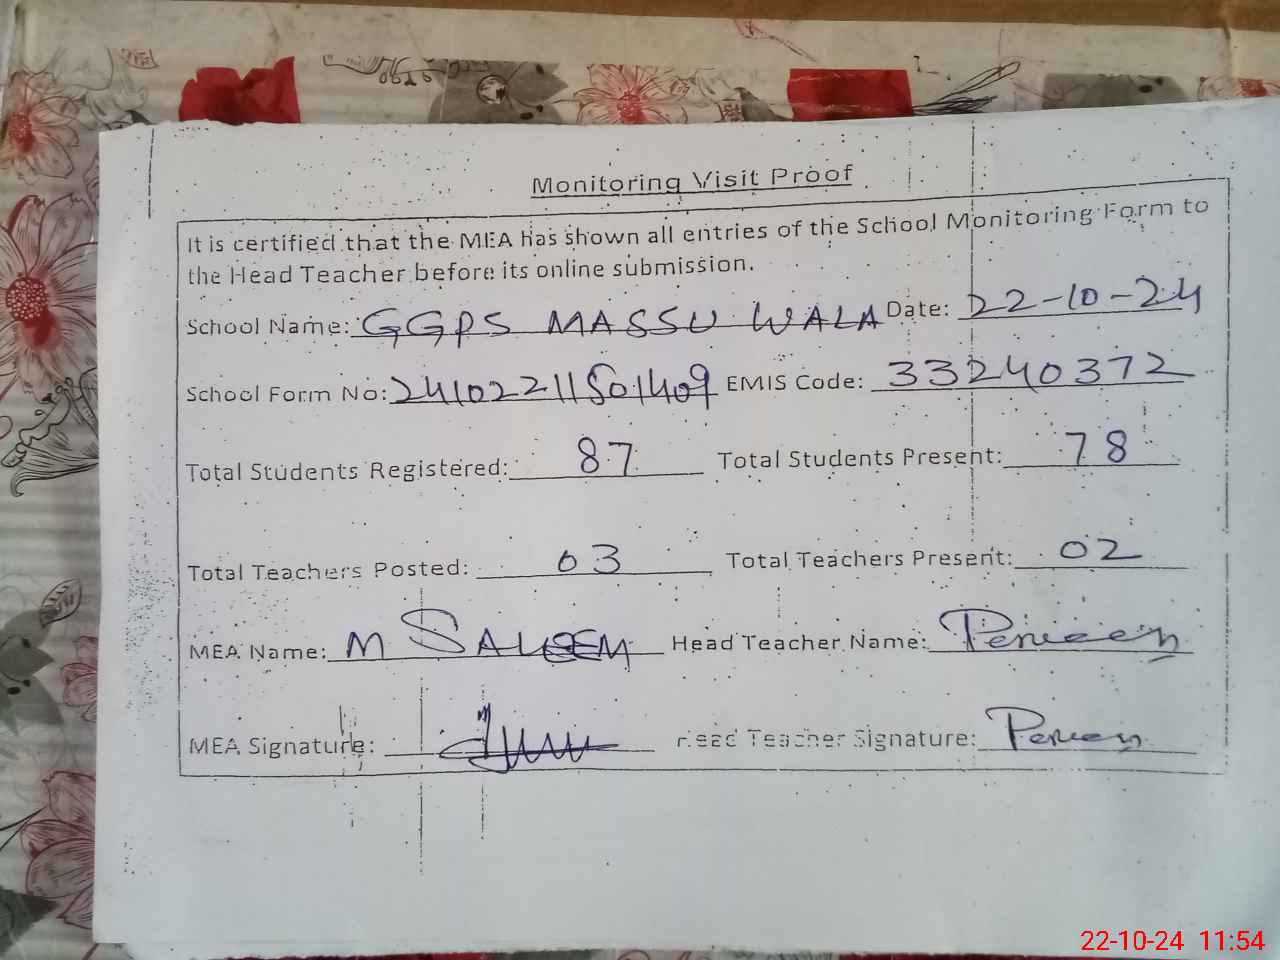 Monitoring Visit Proof
It is certified that the MEA has shown all entries of the School Monitoring Form to
the Head Teacher before its online submission.
School Name: GGPS MASSU WALA Date: 22-10-24
School Form No: 24102211501409 EMIS Code: 33240372
Total Students Registered: 87 Total Students Present: 78
Total Teachers Posted: 03 Total Teachers Present: 02
MEA Name: M SALEEM Head Teacher Name: Perveen
MEA Signature: Head Teacher Signature: Perveen
22-10-24 11:54